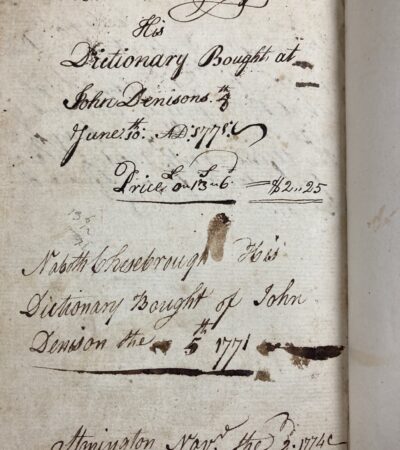 His
Dictionary Bought at
John Denisons 4th
June 10th: AD: 1771
Price £0-£13-6 = $2..25
136
Naboth Chesebrough His
Dictionary Bought of John
Denison the 5th 1771
Stonington Novr. the 2. 1774